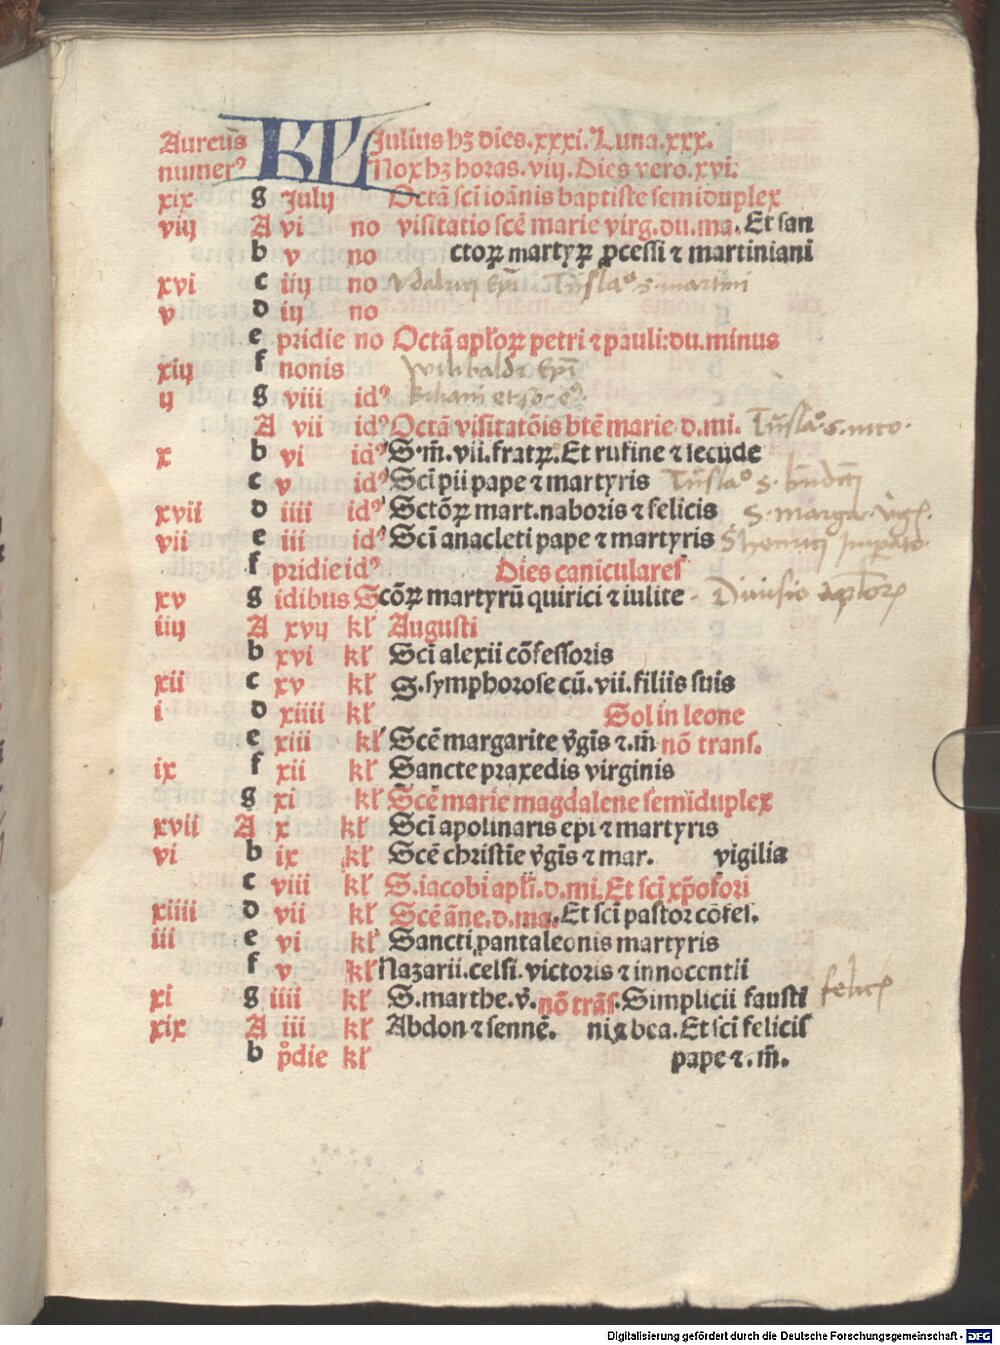 Aureus KL Julius hꝫ dies.xxxi.Luna.xxx.
numerꝰ Nox hꝫ horas.viij.Dies vero.xvi.
xix g Julij Octā sci ioānis baptiste semiduplex
viij A vi no visitatio scē marie virg.du.ma.Et san
b v no ctoꝝ martyꝝ ꝓcessi ⁊ martiniani
xvi c iiij no Vdalrici ep̄i Tr̄sl̄aᵒ s martini
v d iij no
e pridie no Octā apl'oꝝ petri ⁊ pauli:du.minus
xiij f nonis Wilibaldi ep̄i
ij g viii idꝰ Kiliani et
A vii idꝰ Octā visitatōis btē marie d.mi. Tr̄sl̄aᵒ.s.
x b vi idꝰ S.m̄.vii.fratꝝ.Et rufine ⁊ secūde
c v idꝰ Sci pii pape ⁊ martyris Tr̄sl̄aᵒ s.
xvii d iiii idꝰ Sctōꝝ mart.naboris ⁊ felicis S.marga.
vii e iii idꝰ Sci anacleti pape ⁊ martyris S henrici
f pridie idꝰ Dies caniculares
xv g idibus Scōꝝ martyrū quirici ⁊ iulite Diuisio aplorꝝ
iiij A xvij kl' Augusti
b xvi kl' Sci alexii cōfessoris
xii c xv kl' S.symphorose cū.vii.filiis suis
i d xiiii kl' Sol in leone
e xiii kl' Scē margarite v̄gīs ⁊.m̄ nō trans.
ix f xii kl' Sancte praxedis virginis
g xi kl' Scē marie magdalene semiduplex
xvii A x kl' Sci apolinaris epi ⁊ martyris
vi b ix kl' Scē christīe v̄gīs ⁊ mar. vigilia
c viii kl' S.iacobi apl'i.d.mi.Et sci xp̄ofori
xiiii d vii kl' Scē āne.d.ma.Et sci pastor cōfes.
iii e vi kl' Sancti pantaleonis martyris
f v kl' Nazarii.celsi.victoris ⁊ innocentii
xi g iiii kl' S.marthe.v̄.nō trās.Simplicii fausti felicꝭ
xix A iii kl' Abdon ⁊ sennē. nix bea.Et sci felicis
b p̄die kl' pape ⁊.m̄.
Digitalisierung gefördert durch die Deutsche Forschungsgemeinschaft - DFG